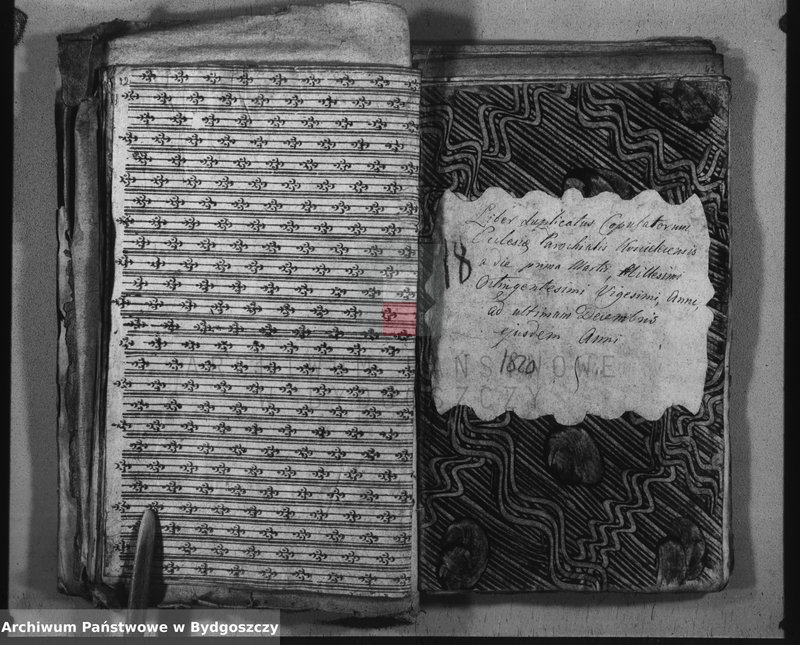 18
Liber duplicatus Copulatorum
Ecclesiæ Parochialis
a die prima Martis, Millesimi
Octingentesimi Vigesimi, Anni,
ad ultimam Decembris
ejusdem Anni
1820
ARCHIWUM PAŃSTWOWE
W BYDGOSZCZY
Archiwum Państwowe w Bydgoszczy